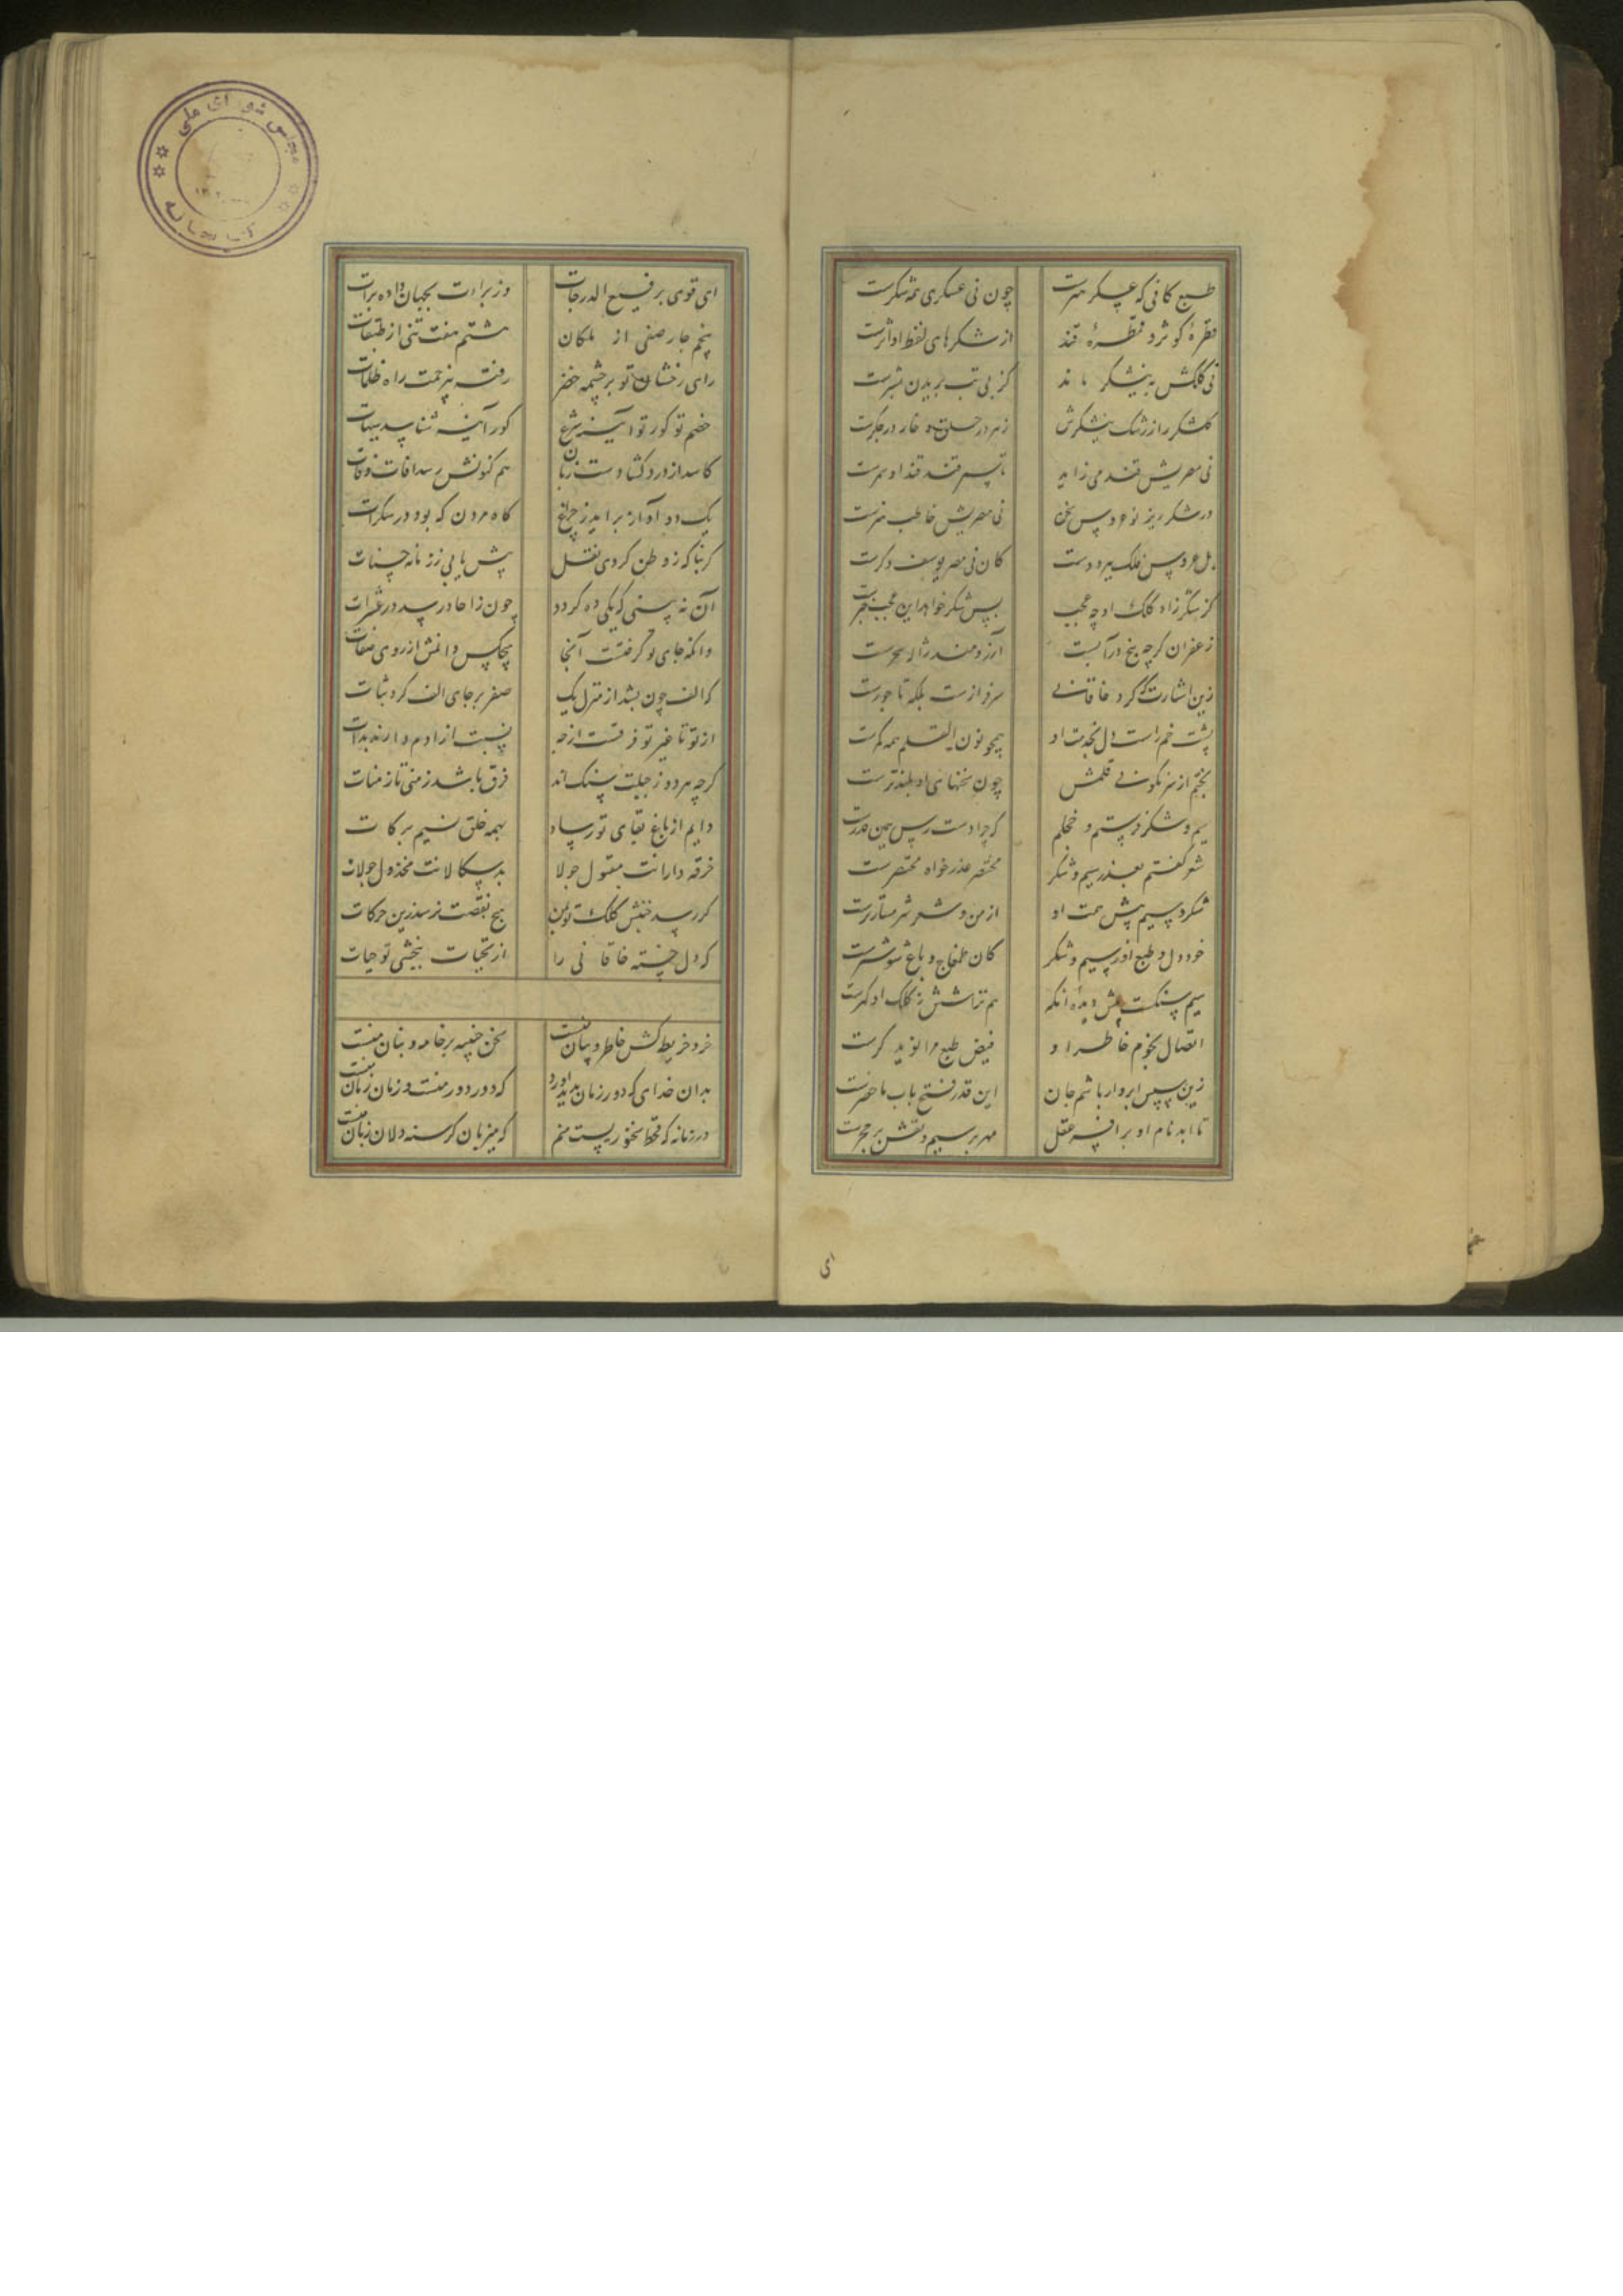 طبع کافی که عسکر هنرست چون نی عسکری همه شکرست
قطرهٔ کوثر و قطرهٔ قند از شکرهای لفظ او اثرست
نی کلکش به نیشکر ماند کز پی تب بریدن بشرست
گلشکر را ز رشک نیشکرش زهر در حلق و خار در جگرست
نی مصریش قند می زاید تا بسمرقند قند او سمرست
در شکر ریز نو عروس سخن نی مصریش خاطب هنرست
بل عروس فلک ببرد دست کان نی مصر یوسف دگرست
گر شکر زاد کلک او چه عجب پس شکر خواهد این عجب خبرست
زعفران گرچه بیخ در آبست آرزومند ژاله سحرست
زین اشارت که کرد خاقانی سرفرازست بلکه تاجورست
پشت خم راست دل بخدمت او همچو نون القلم همه کمرست
بختم از سرنگونی قلمش چون سخنهای او بلندترست
سیم و شکر فرستم و خجلم که چرا دسترس همین قدرست
شعر گفتم بعذر سیم و شکر مختصر عذر خواه مختصرست
شکر و سیم پیش همت او از من و شعر شرمسارترست
خود دل و طبع او ز سیم و شکر کان طمغاج و باغ شوشترست
سیم سنگست پیش دیده آنکه هم تراشش ز کلک او گهرست
اتصال نجوم خاطر او فیض طبع مرا نوید گرست
زین سپس ابروار پاشم جان این قدر فتح باب ماحضرست
تا ابد نام او بر افسر عقل مهر بر سیم و نقش بر حجرست
ای
مجلس شورای ملی
کتابخانه
ای قوی بر رفیع الدرجات وز برات بجهان داده برات
پنجم چار صفی از ملکان هشتم هفت تنی از طبقات
رای رخشان تو بر چشمه خضر رفت بی زحمت راه ظلمات
خصم تو کور و تو آینه شرع کور آینه شناسد هیهات
کاسد از ورد گشادست زبان هم کنونش رسد آفات وفات
یک دو آواز برآید ز چراغ گاه مردن که بود در سکرات
گر بناگه ز وطن کردی نقل بیش یابی ز زمانه حسنات
آن نه بینی که یکی ده گردد چون ز آحاد رسد در عشرات
وانکه جای تو گرفتست آنجا هیچکس دانمش از روی صفات
که الف چون بشد از منزل یک صفر بر جای الف کرد ثبات
از تو تا غیر تو فرقست ارچه نسبت از آدم دارند بذات
گرچه هر دو ز جبلت سنگ اند فرق باشد ز منی تا ز منات
دایم از باغ بقای تو رساد بهمه خلق نسیم برکات
خرقه دارانت مقبول چو لا بدسگالانت مخذول چو لات
گر رسد جنبش کلک تو بمن هیچ نقصت نرسد زین حرکات
که دل خسته خاقانی را از تحیات ببخشی تو حیات
خرد خریطه کش خاطر و بیان منست سخن جنیبه بر خامه و بنان منست
بدان خدای که دور زمان پدید آورد که دور دور منست و زمان زمان منست
در زمانه که قحط سخنوریست منم که میزبان گرسنه دلان زبان منست